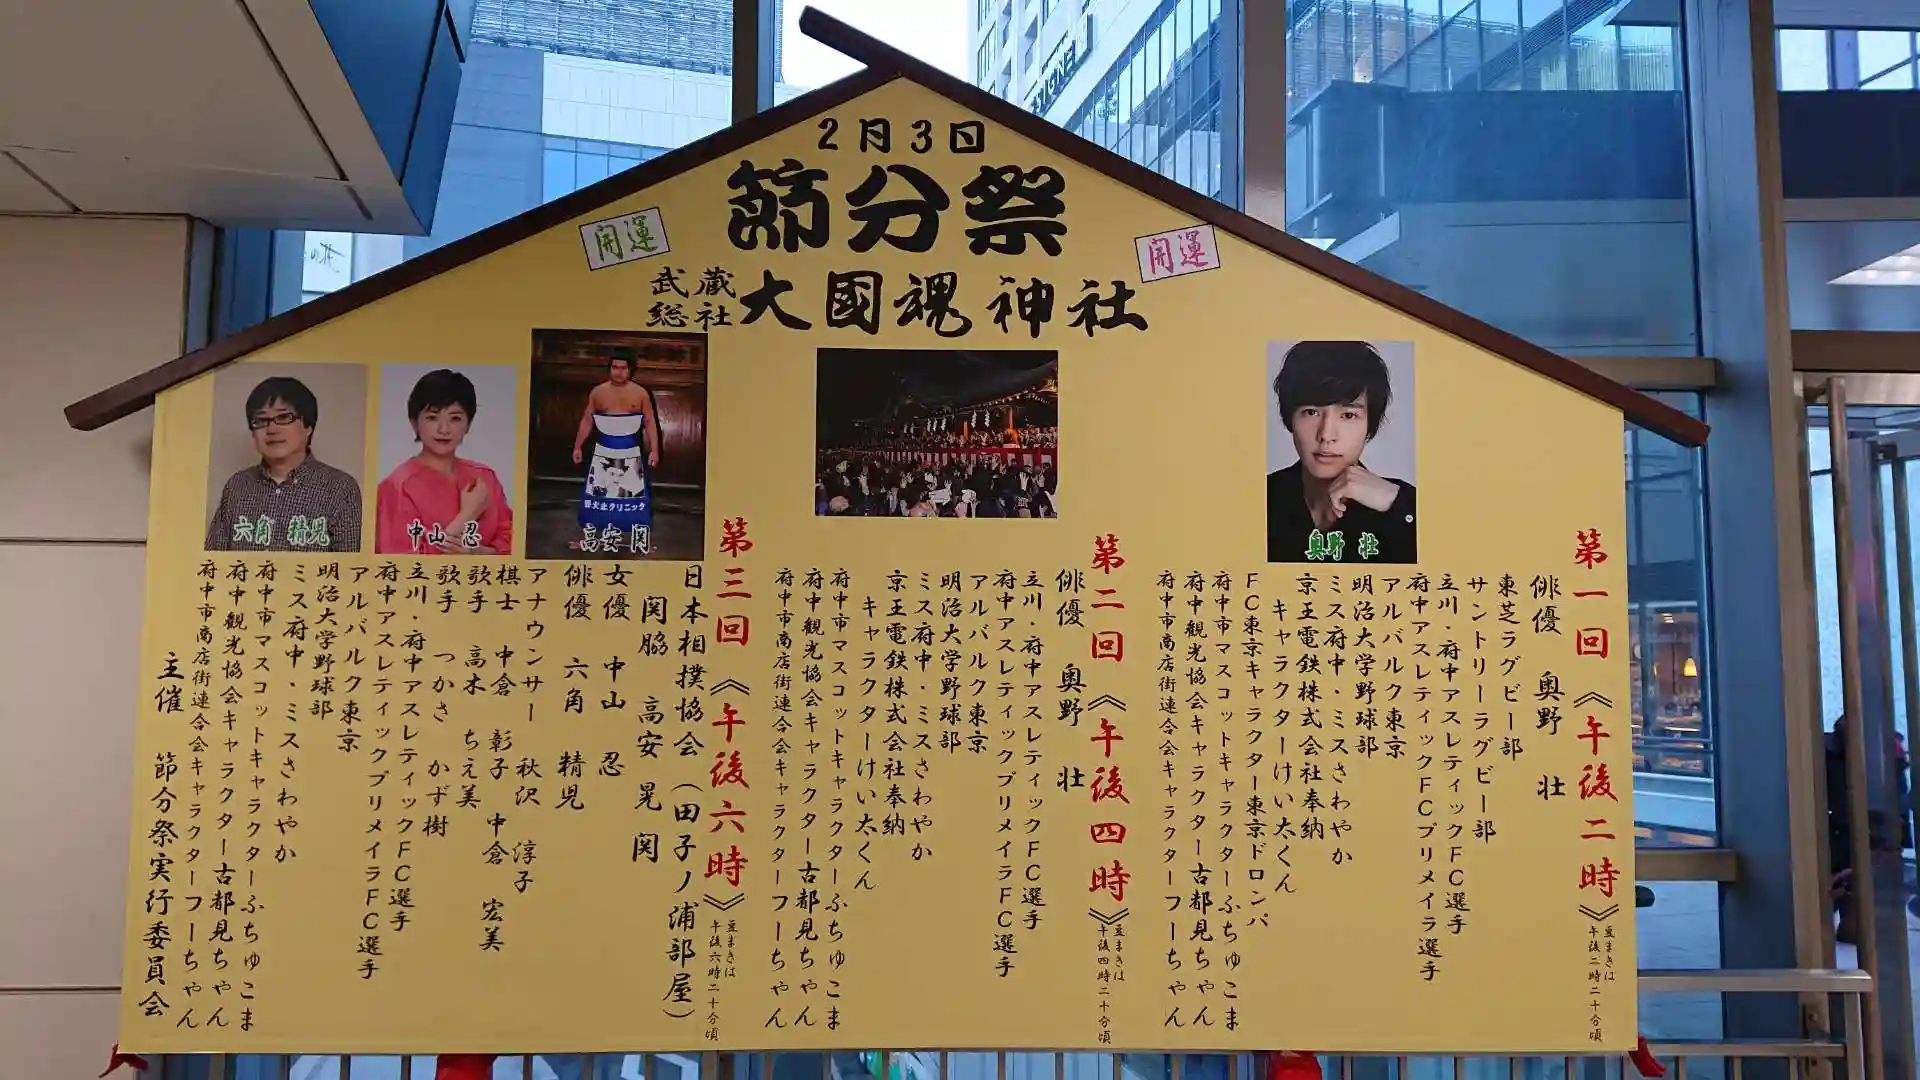 2月3日
節分祭
開運
開運
武蔵総社 大國魂神社
奥野 壮
高安 関
野木止クリニック
中山 忍
六角 精児
第一回《午後二時》
豆まきは午後二時二十分頃
俳優 奥野 壮
東芝ラグビー部
サントリーラグビー部
立川・府中アスレティックFC選手
府中アスレティックFCプリメイラ選手
アルバルク東京
明治大学野球部
ミス府中・ミスさわやか
京王電鉄株式会社奉納
キャラクターけい太くん
FC東京キャラクター東京ドロンパ
府中市マスコットキャラクターふちゅこま
府中観光協会キャラクター古都見ちゃん
府中市商店街連合会キャラクターフーちゃん
第二回《午後四時》
豆まきは午後四時二十分頃
俳優 奥野 壮
立川・府中アスレティックFC選手
府中アスレティックプリメイラFC選手
アルバルク東京
明治大学野球部
ミス府中・ミスさわやか
京王電鉄株式会社奉納
キャラクターけい太くん
府中市マスコットキャラクターふちゅこま
府中観光協会キャラクター古都見ちゃん
府中市商店街連合会キャラクターフーちゃん
第三回《午後六時》
豆まきは午後六時二十分頃
日本相撲協会(田子ノ浦部屋)
関脇 高安 晃 関
女優 中山 忍
俳優 六角 精児
アナウンサー 秋沢 淳子
棋士 中倉 彰子 中倉 宏美
歌手 高木 ちえ美
歌手 つかさ かず樹
立川・府中アスレティックFC選手
府中アスレティックプリメイラFC選手
アルバルク東京
明治大学野球部
ミス府中・ミスさわやか
府中市マスコットキャラクターふちゅこま
府中観光協会キャラクター古都見ちゃん
府中市商店街連合会キャラクターフーちゃん
主催 節分祭実行委員会